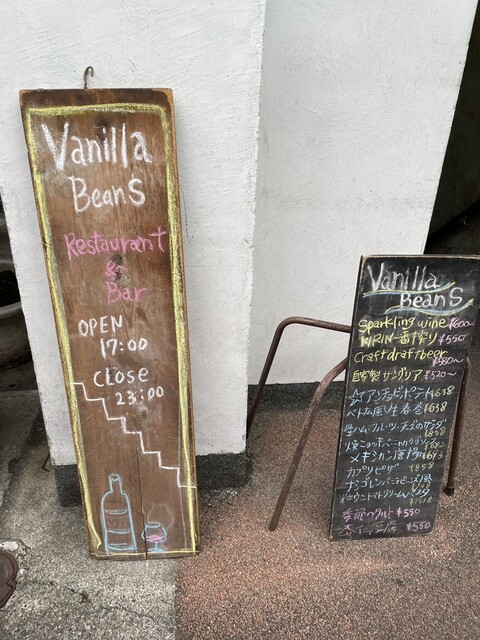 Vanilla
Beans
Restaurant
&
Bar
OPEN
17:00
CLOSE
23:00
Vanilla
Beans
Sparkling wine ¥600~
KIRIN一番搾り ¥550
Craft draft beer
¥580~
自家製サングリア ¥520~
アンチョビポテト ¥638
ベトナム風生春巻 ¥638
生ハム・フルーツ・チーズのサラダ
¥858
メキシカン
カプリピザ ¥858
ナシゴレン
生ウニトマトクリームパスタ
季節のタルト ¥550
¥550